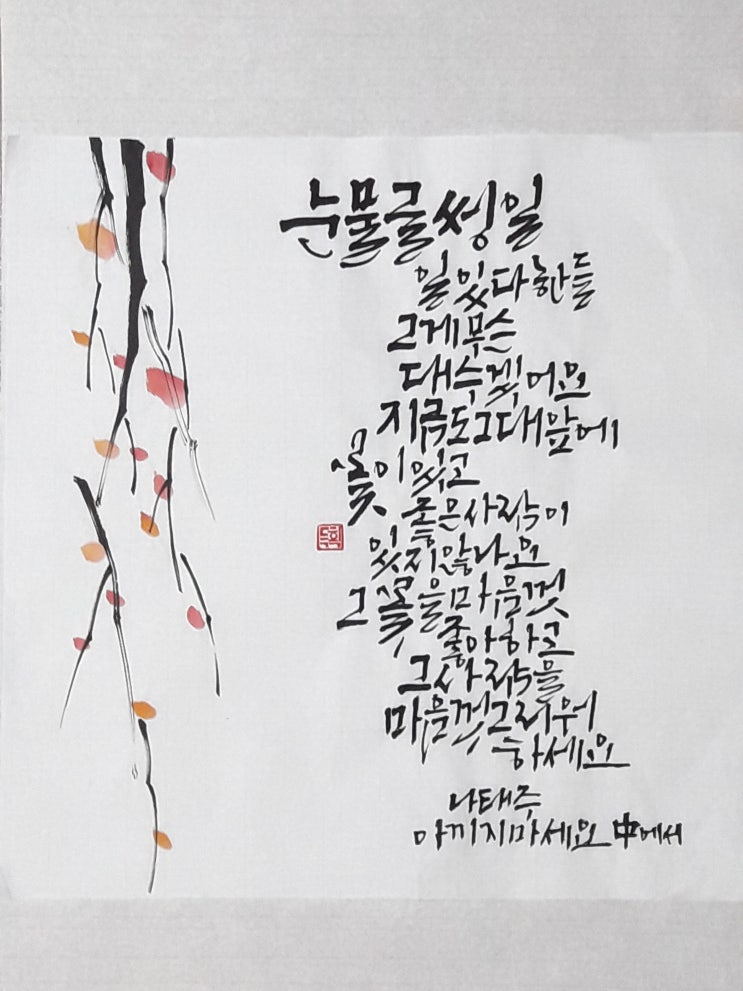 눈물글썽일
일있다한들
그게무슨
대수겠어요
지금도그대앞에
꽃이있고
좋은사람이
있지않나요
그꽃을마음껏
좋아하고
그사람을
마음껏그리워
하세요
나태주
아끼지마세요 中에서